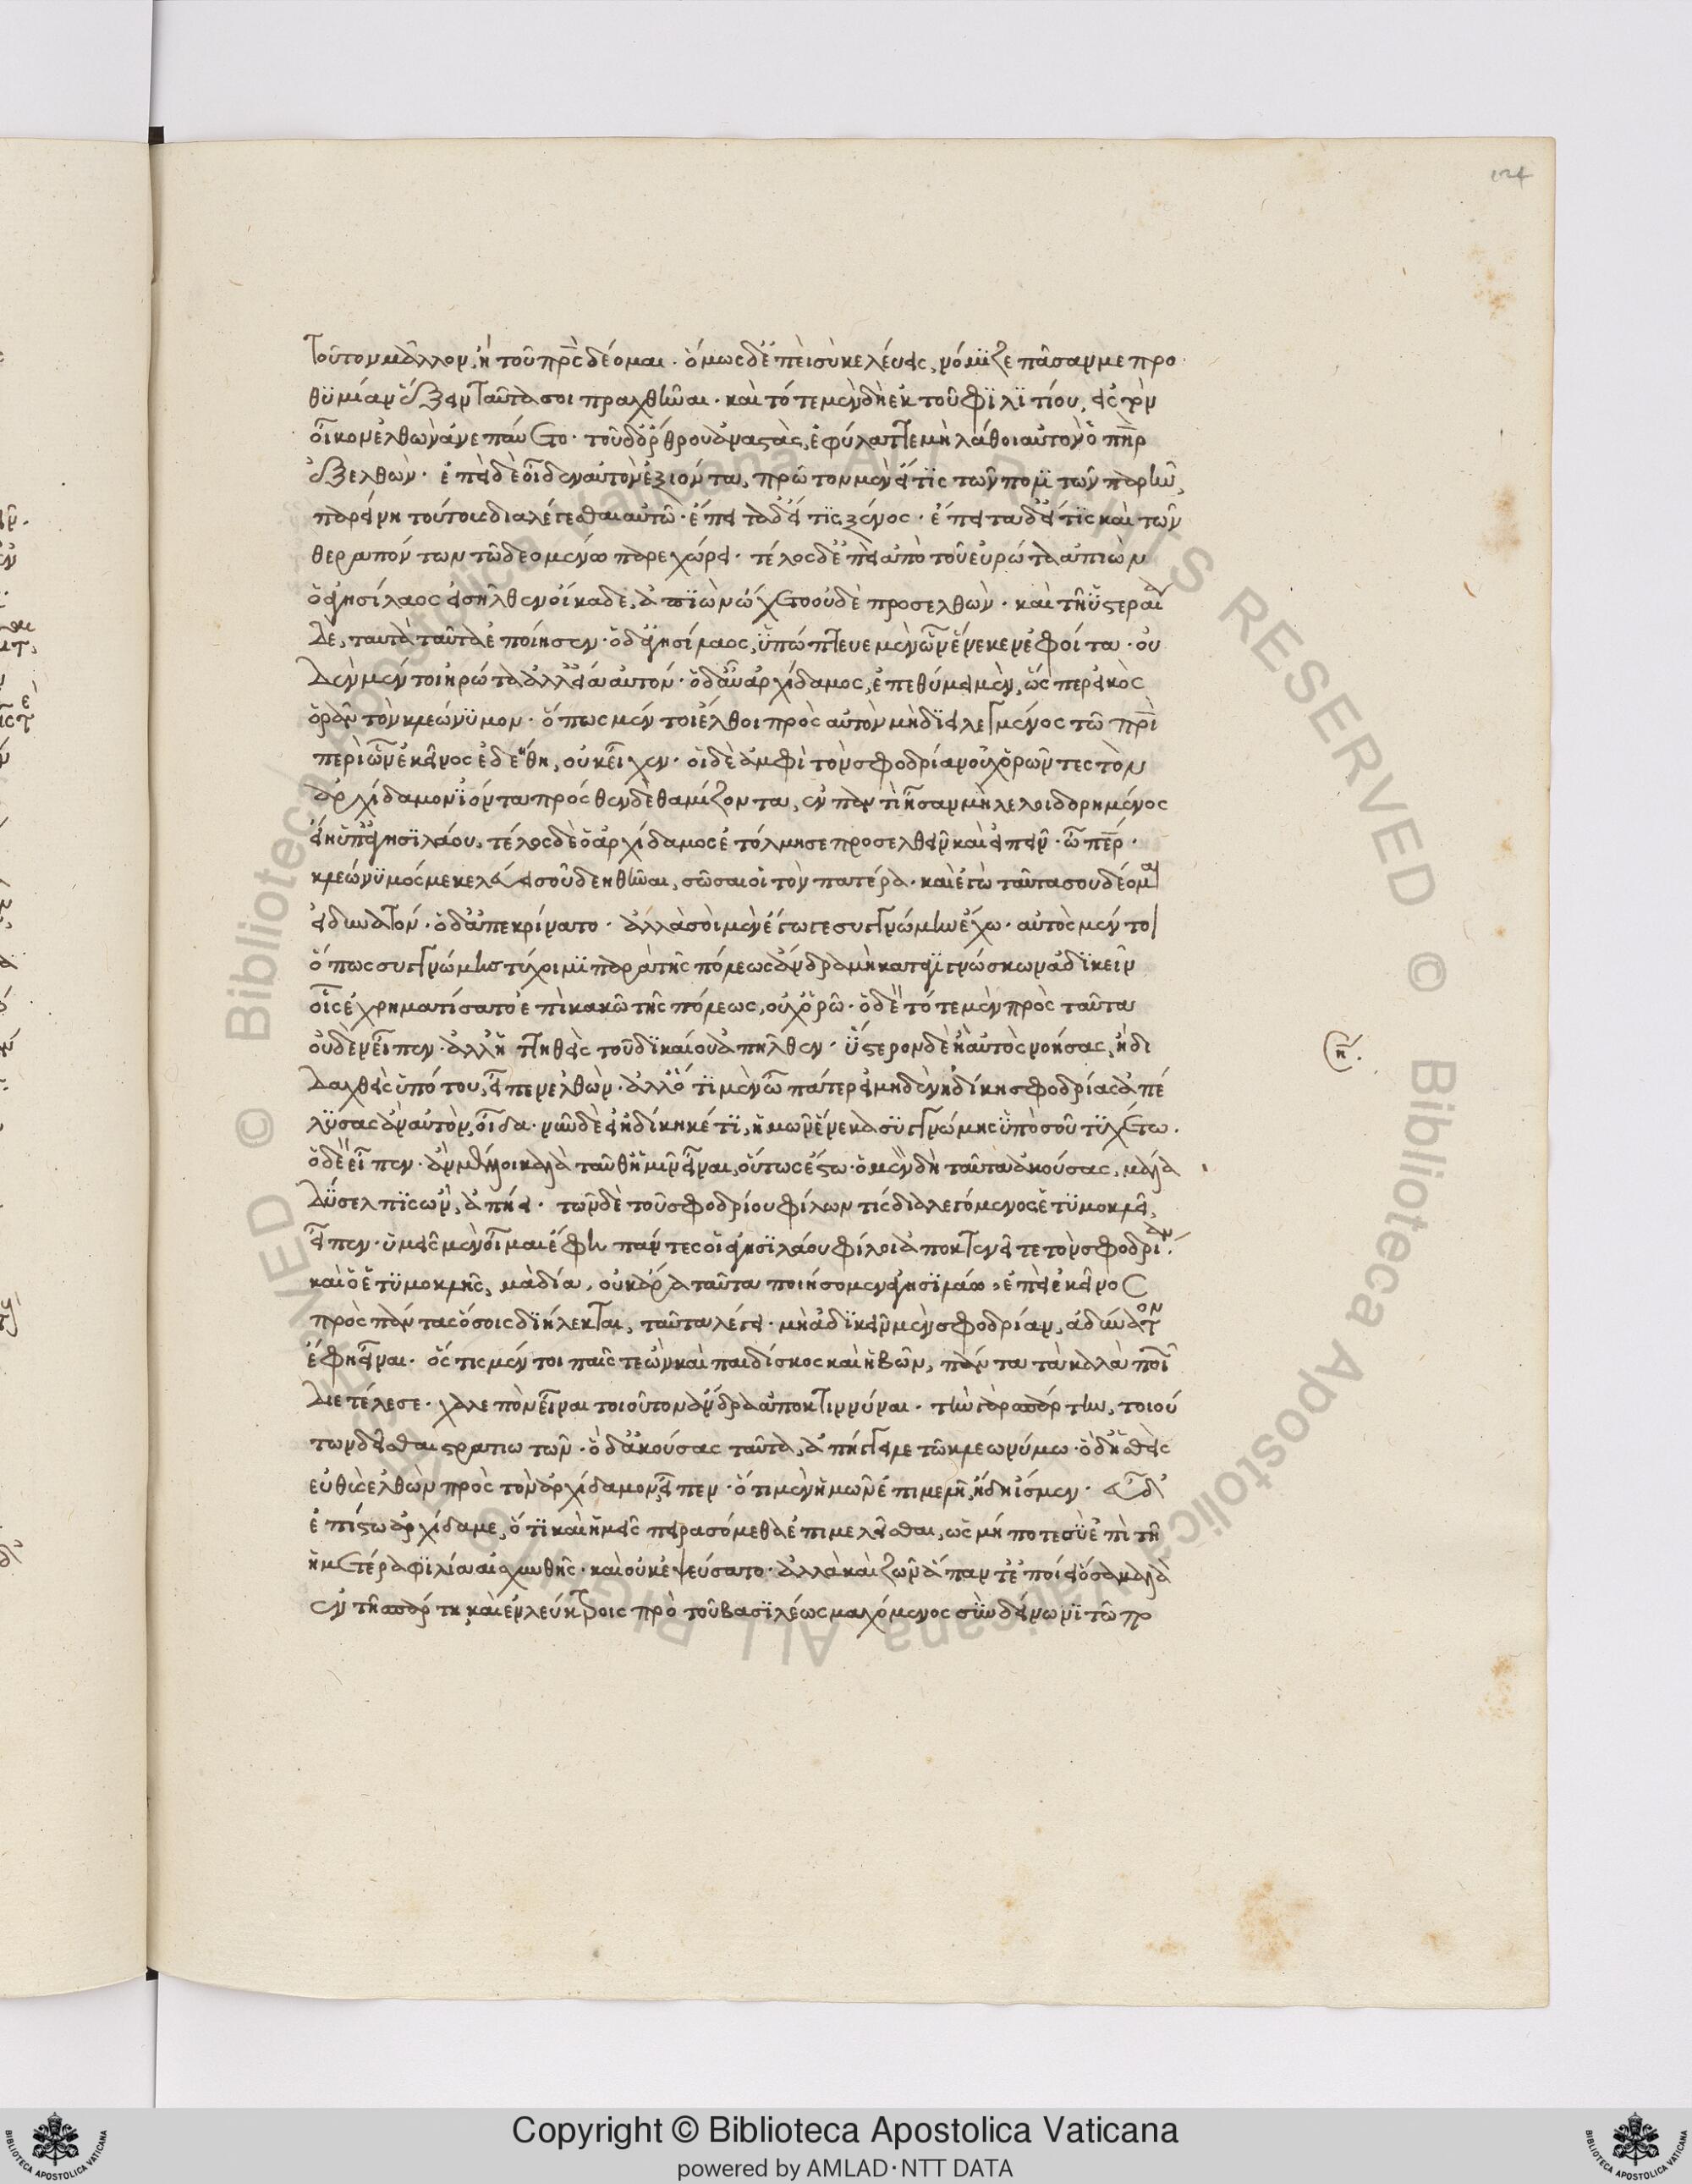 124
τοῦτον μᾶλλον, ἢ τοῦ πρς̅ δέομαι· ὅμως δ' ἐπεὶ σὺ κελεύεις, νόμιζε πᾶσαν με προ
θυμίαν ἕξειν ταῦτά σοι πραχθῆναι· καὶ τότε μὲν δὴ ἐκ τοῦ φιλιτίου, εἰς τὸν
οἶκον ἐλθὼν ἀνεπαύετο· τοῦ δ' ὄρθρου ἀναστὰς, ἐφύλαττε μὴ λάθοι αὐτὸν ὁ πη̅ρ
ἐξελθών· ἐπεὶ δὲ οἶδεν αὐτὸν ἐξιόντα, πρῶτον μὲν εἴ τις τῶν πολιτῶν παρῆν,
παρείη τούτοις διαλέγεσθαι αὐτῶ· ἔπειτα δ' εἴ τις ξένος· ἔπειτα δ' εἴ τις καὶ τῶν
θεραπόντων τῶ δεομένω παρεχώρει· τέλος δ' ἐπεὶ ἀπὸ τοῦ εὐρώτα ἀπιὼν
ὁ ἀγησίλαος εἰσῆλθεν οἴκαδε, ἀπιὼν ὤχετο οὐδὲ προσελθών· καὶ τῆ ὑστεραία
δὲ, ταυτὰ ταῦτα ἐποίησεν· ὁ δ' ἀγησίλαος, ὑπώπτευε μὲν ὧν ἕνεκεν ἐφοίτα· οὐ
δὲν μέντοι ἠρώτα ἀλλ' εἴα αὐτόν· ὁ δ' αὖ ἀρχίδαμος, ἐπεθύμει μὲν, ὥσπερ εἰκὸς
ὁρᾶν τὸν κλεώνυμον· ὅπως μέντοι ἔλθοι πρὸς αὐτὸν μὴ διειλεγμένος τῶ πρι̅
περὶ ὧν ἐκεῖνος ἐδεήθη, οὐκ εἶχεν· οἱ δὲ ἀμφὶ τὸν σφοδρίαν οὐχ ὁρῶντες τὸν
ἀρχίδαμον ἰόντα πρόσθεν δὲ θαμίζοντα, ἐν παντὶ ἦσαν μὴ λελοιδορημένος
εἴη ὑπ' ἀγησιλάου, τέλος δὲ ὁ ἀρχίδαμος ἐτόλμησε προσελθεῖν καὶ εἰπεῖν· ὦ πε̅ρ·
κλεώνυμός με κελεύει σοῦ δεηθῆναι, σῶσαι οἱ τὸν πατέρα· καὶ ἐγὼ ταῦτα σου δέομαι
εἰ δυνατόν· ὁ δ' ἀπεκρίνατο· ἀλλὰ σοὶ μὲν ἔγωγε συγγνώμην ἔχω· αὐτὸς μέντοι
ὅπως συγγνώμης τύχοιμι παρὰ τῆς πόλεως ἄνδρα μὴ καταγιγνώσκων ἀδικεῖν
οἷς ἐχρηματίσατο ἐπὶ κακῶ τῆς πόλεως, οὐχ ὁρῶ· ὁ δὲ τότε μὲν πρὸς ταῦτα
οὐδὲν εἶπεν· ἀλλ' ἡττηθεὶς τοῦ δικαίου ἀπῆλθεν· ὕστερον δὲ ἢ αὐτὸς νοήσας, ἢ δι
δαχθεὶς ὑπό του, εἶπεν ἐλθών· ἀλλ' ὅτι μὲν ὦ πάτερ εἰ μηδὲν ἠδίκη σφοδρίας ἀπέ
λυσας ἂν αὐτὸν, οἶδα· νῦν δὲ εἰ ἠδίκηκέ τι, ἡμῶν ἕνεκα συγγνώμης ὑπὸ σοῦ τυχέτω·
ὁ δὲ εἶπεν· ἂν μέλλοι καλὰ ταῦθ' ἡμῖν εἶναι, οὕτως ἔσται· ὁ μὲν δὴ ταῦτα ἀκούσας, μάλα
δύσελπις ὢν, ἀπήει· τῶν δὲ τοῦ σφοδρίου φίλων τίς διαλεγόμενος ἐτυμοκλεῖ,
εἶπεν· ὑμεῖς μὲν οἶμαι ἔφη πάντες οἱ ἀγησιλάου φίλοι ἀποκτενεῖτε τὸν σφοδρίαν·
καὶ ὁ ἐτυμοκλῆς, μὰ δία, οὐκ ἄρα ταῦτα ποιήσομεν ἀγησιλάω· ἐπεὶ ἐκεῖνος
πρὸς πάντας ὅσοις διείλεκται, ταῦτα λέγει· μὴ ἀδικεῖν μὲν σφοδρίαν, ἀδύνατον
ἔφη εἶναι· ὅστις μέντοι παῖς τε ὢν καὶ παιδίσκος καὶ ἡβῶν, πάντα τὰ καλὰ ποι
διετέλεσε· χαλεπὸν εἶναι τοιοῦτον ἄνδρα ἀποκτιννύναι· τὴν γὰρ σπάρτην, τοιού
των δεῖσθαι στρατιωτῶν· ὁ δ' ἀκούσας ταῦτα, ἀπήγγειλε τῶ κλεωνύμω· ὁ δ' ἡσθεὶς
εὐθὺς ἐλθὼν πρὸς τὸν ἀρχίδαμον, εἶπεν· ὅτι μὲν ἡμῶν ἐπιμελῆ, ἤδη ἴσμεν· εὖ δ'
ἐπίστω ἀρχίδαμε, ὅτι καὶ ἡμεῖς πειρασόμεθα ἐπιμελεῖσθαι, ὡς μή ποτε σὺ ἐπὶ τῆ
ἡμετέρα φιλία αἰσχυνθῆς· καὶ οὐκ ἐψεύσατο· ἀλλὰ καὶ ζῶν ἅπαντ' ἐποίει ὅσα καλὰ
ἐν τῆ σπάρτη, καὶ ἐν λεύκτροις πρὸ τοῦ βασιλέως μαχόμενος σὺν δείνωνι τῶ πο
Copyright © Biblioteca Apostolica Vaticana
powered by AMLAD·NTT DATA